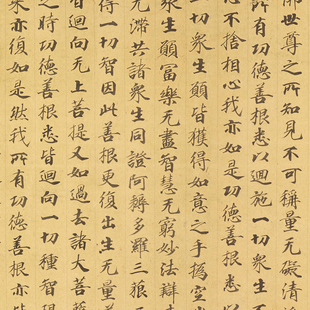 佛世尊之所知見不可稱量无礙清
所有功德善根悉以迴施一切衆生不
心不捨相心我亦如是功德善根悉以
切衆生願皆獲得如意之手撝空出
衆生願冨樂无盡智慧无窮妙法辯
无滯共諸衆生同證阿耨多羅三藐
得一切智因此善根更復出生无量
迴向无上菩提又如過去諸大菩薩
之時功德善根悉皆迴向一切種智現
來亦復如是然我所有功德善根亦